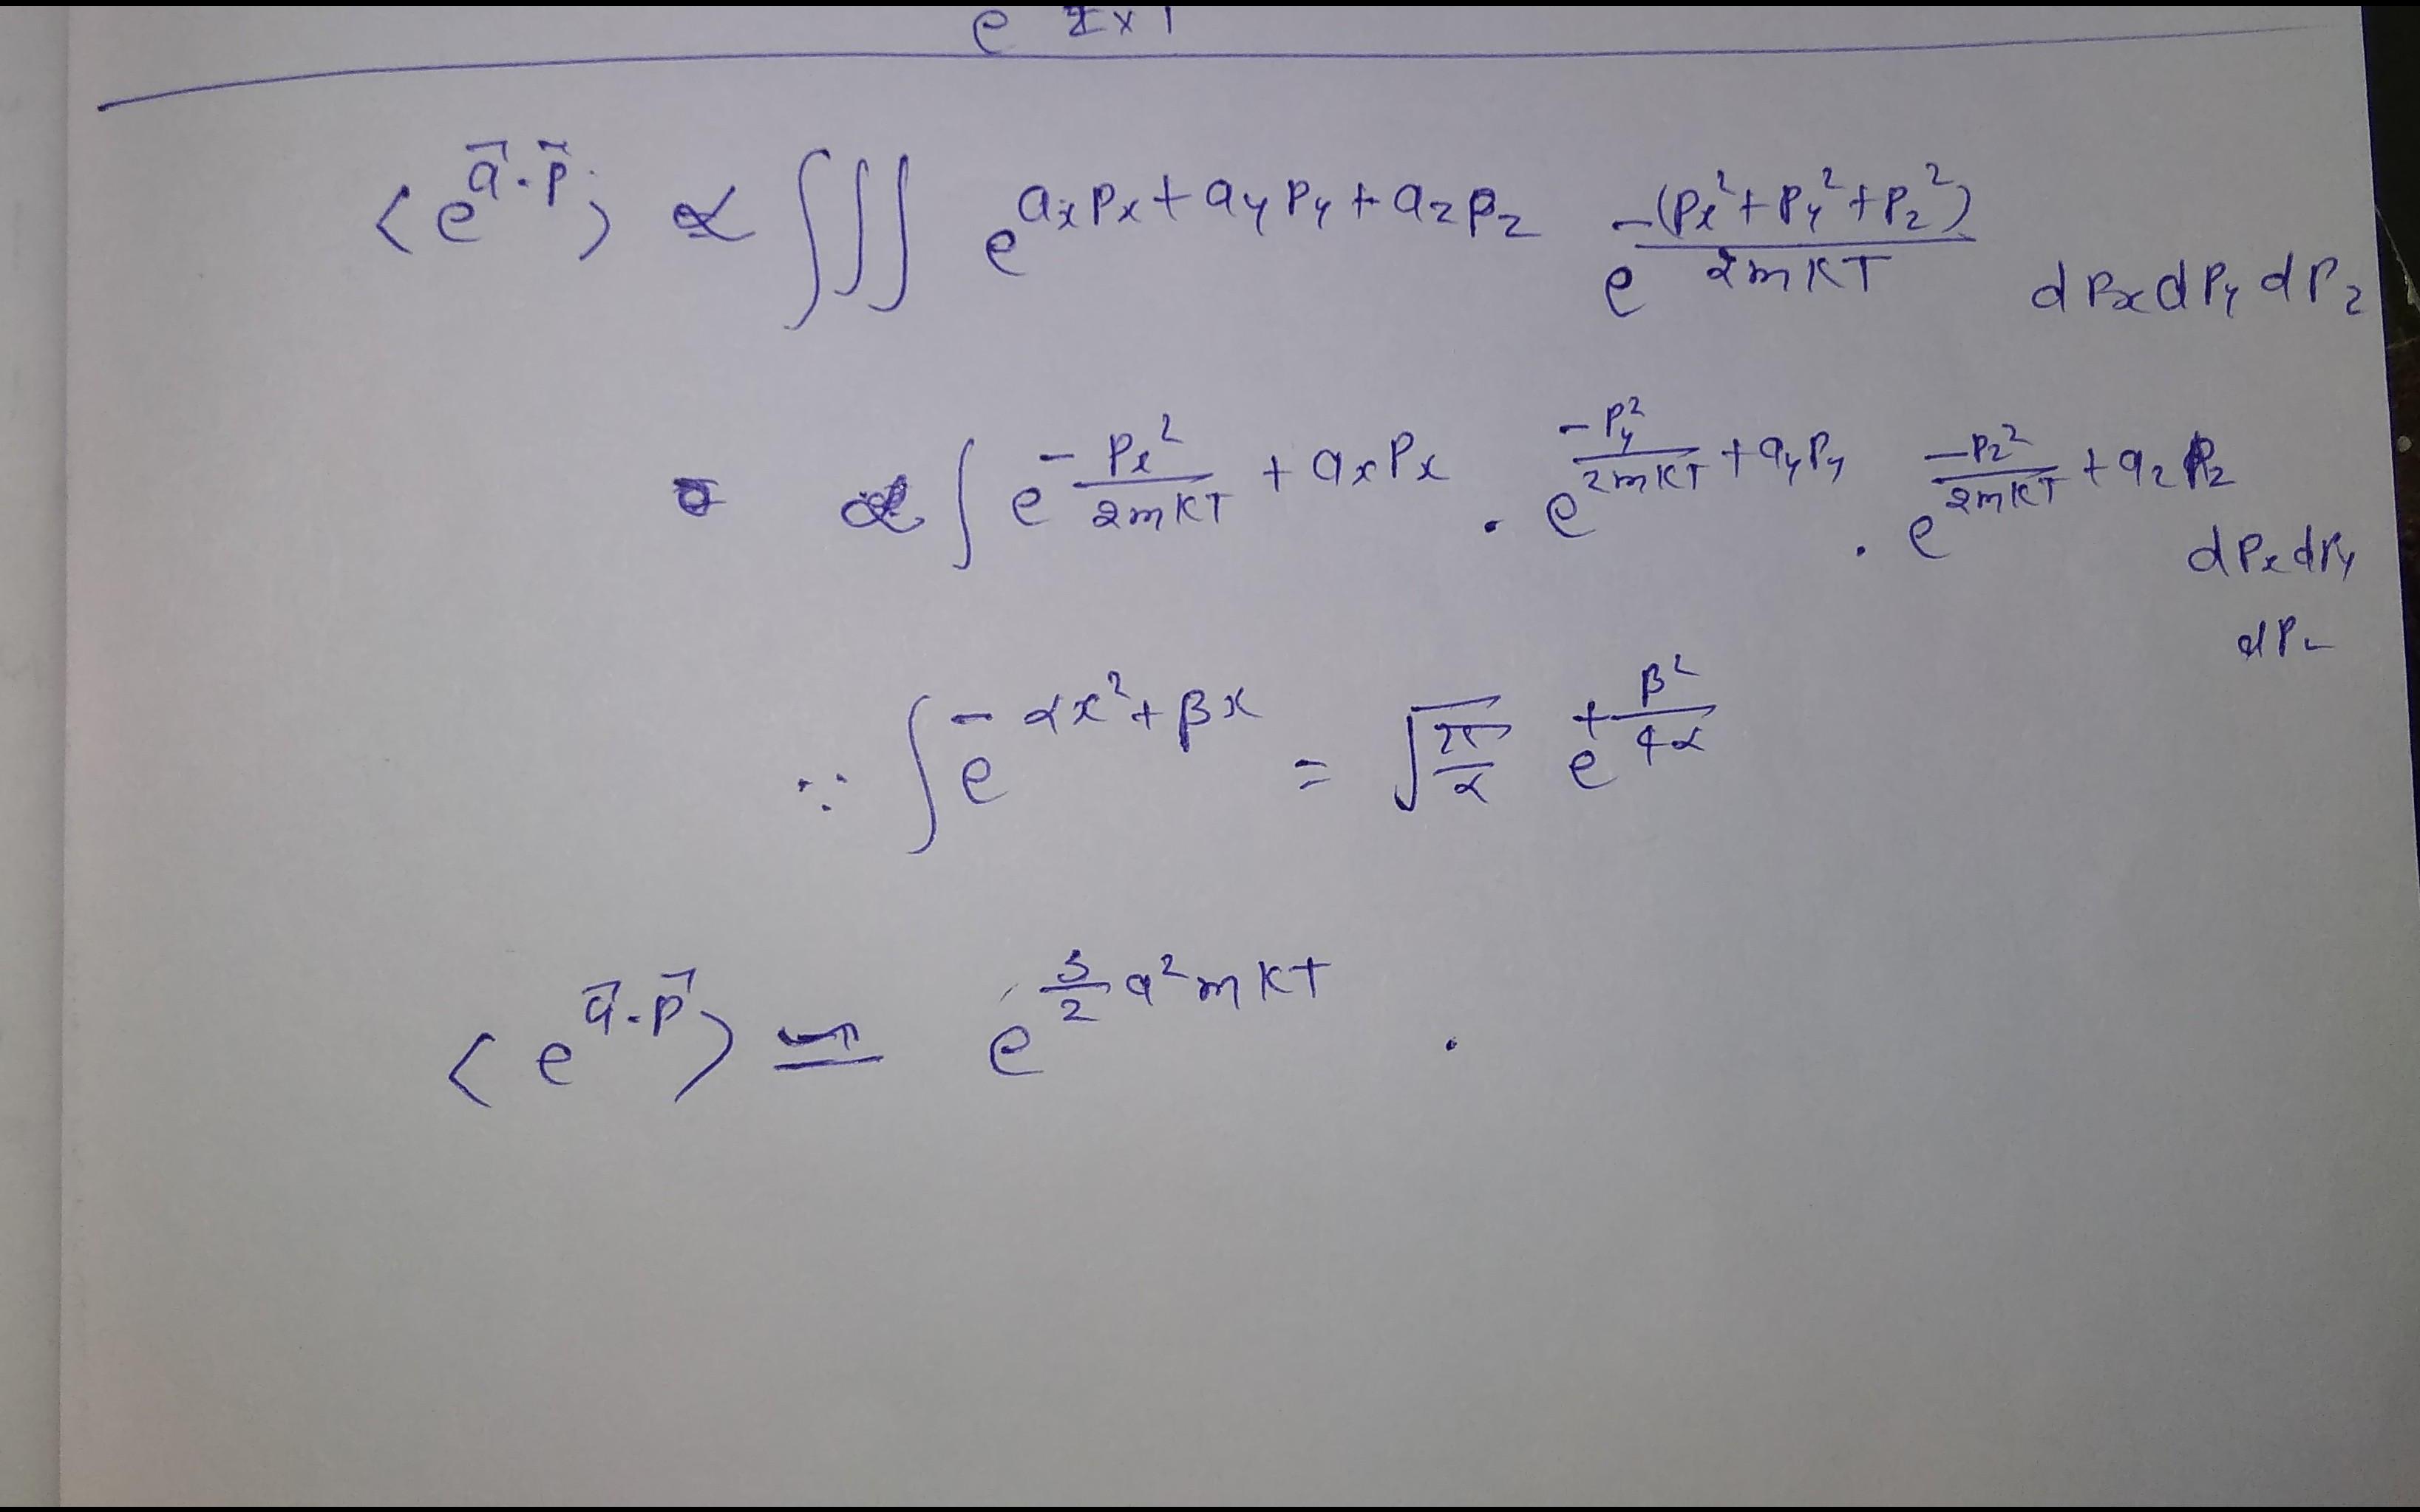 e 2×1
⟨e^{\vec{a}·\vec{p}}⟩ ∝ ∫∫∫ e^{a_x p_x + a_y p_y + a_z p_z} e^{-(p_x^2 + p_y^2 + p_z^2)/2mKT} dp_x dp_y dp_z
∝ ∫ e^{-p_x^2/2mKT + a_x p_x} · e^{-p_y^2/2mKT + a_y p_y} · e^{-p_z^2/2mKT + a_z p_z}
dp_x dp_y
dp
∵ ∫ e^{-αx^2 + βx} = √(π/α) e^{+β^2/4α}
⟨e^{\vec{a}·\vec{p}}⟩ = e^{3/2 a^2 mKT} .